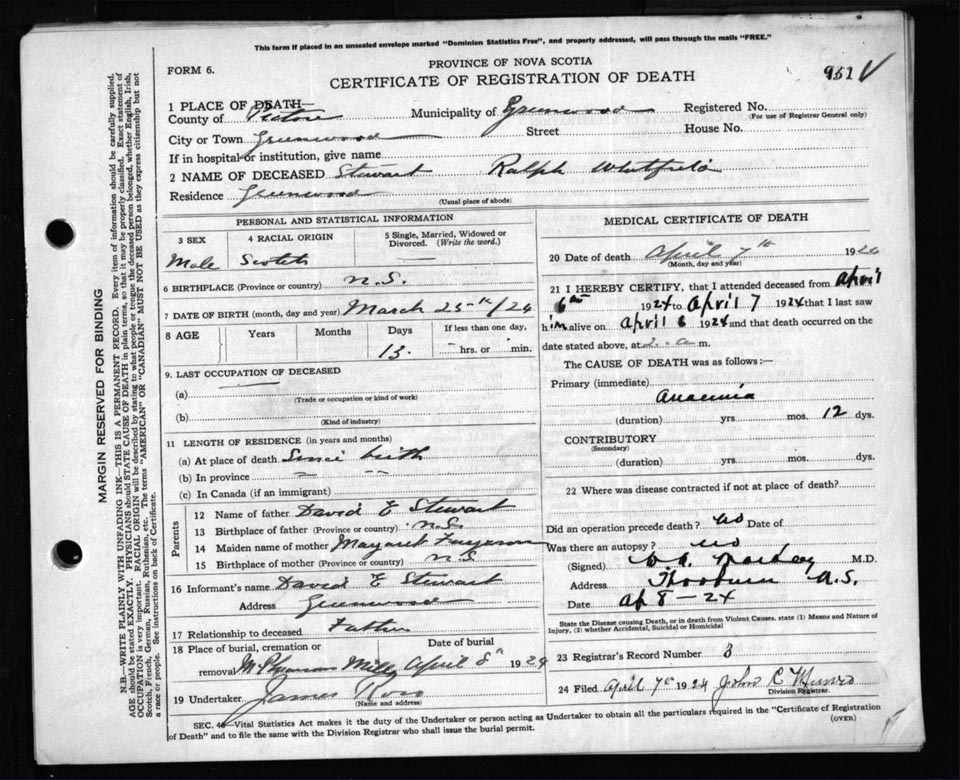 This form if placed in an unsealed envelope marked "Dominion Statistics Free", and properly addressed, will pass through the mails "FREE."
PROVINCE OF NOVA SCOTIA
FORM 6.
CERTIFICATE OF REGISTRATION OF DEATH
951
1 PLACE OF DEATH—
County of Pictou Municipality of Greenwood Registered No.
(For use of Registrar General only)
City or Town Greenwood Street House No.
If in hospital or institution, give name
2 NAME OF DECEASED Stewart Ralph Whitfield
Residence Greenwood
(Usual place of abode)
PERSONAL AND STATISTICAL INFORMATION
3 SEX 4 RACIAL ORIGIN 5 Single, Married, Widowed or Divorced. (Write the word.)
Male Scotch —
6 BIRTHPLACE (Province or country) N.S.
7 DATE OF BIRTH (month, day and year) March 25th/24
8 AGE Years Months Days If less than one day,
13. hrs. or min.
9. LAST OCCUPATION OF DECEASED
(a)
(Trade or occupation or kind of work)
(b)
(Kind of industry)
11 LENGTH OF RESIDENCE (in years and months)
(a) At place of death Since birth
(b) In province — —
(c) In Canada (if an immigrant)
Parents
12 Name of father David E Stewart
13 Birthplace of father (Province or country) N.S.
14 Maiden name of mother Margaret Ferguson
15 Birthplace of mother (Province or country) N.S
16 Informant's name David E Stewart
Address Greenwood
17 Relationship to deceased Father
18 Place of burial, cremation or removal Date of burial
McPhersons Mills April 8th 1924
19 Undertaker James Ross
(Name and address)
MEDICAL CERTIFICATE OF DEATH
20 Date of death April 7th 1924
(Month, day and year)
21 I HEREBY CERTIFY, that I attended deceased from April
6th 1924 to April 7 1924 that I last saw
him alive on April 6 1924 and that death occurred on the
date stated above, at 2. a m.
The CAUSE OF DEATH was as follows:—
Primary (immediate)
Anaemia
(duration) yrs. mos. 12 dys.
CONTRIBUTORY
(Secondary)
(duration) yrs. mos. dys.
22 Where was disease contracted if not at place of death?
Did an operation precede death? no Date of
Was there an autopsy? no
(Signed) M.D.
Address Thorburn N.S.
Date Ap 8 - 24
State the Disease causing Death, or in death from Violent Causes. state (1) Means and Nature of
Injury, (2) whether Accidental, Suicidal or Homicidal
23 Registrar's Record Number 3
24 Filed April 7th 1924 John C Munro
Division Registrar.
SEC. 48—Vital Statistics Act makes it the duty of the Undertaker or person acting as Undertaker to obtain all the particulars required in the "Certificate of Registration
of Death" and to file the same with the Division Registrar who shall issue the burial permit.
(OVER)
MARGIN RESERVED FOR BINDING
N.B.—WRITE PLAINLY WITH UNFADING INK—THIS IS A PERMANENT RECORD. Every item of information should be carefully supplied.
AGE should be stated EXACTLY. PHYSICIANS should STATE CAUSE OF DEATH in plain terms, so that it may be properly classified. Exact statement of
OCCUPATION is very important. RACIAL ORIGIN will be described by stating to what people or tongue the deceased person belonged, whether English, Irish,
Scotch, French, German, Russian, Ruthenian, etc. The terms "AMERICAN" OR "CANADIAN" MUST NOT BE USED as they express citizenship but not
a race or people. See instructions on back of Certificate.